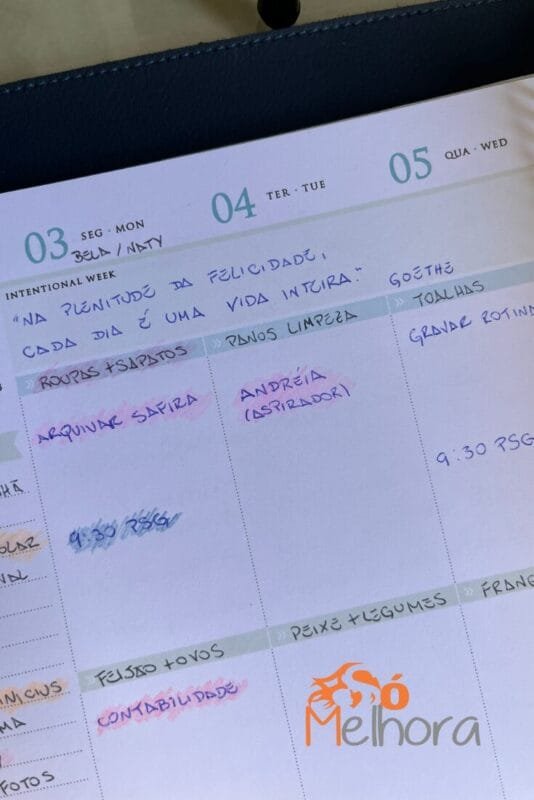 03 SEG · MON
BELA / NATY
04 TER · TUE
05 QUA · WED
INTENTIONAL WEEK
"NA PLENITUDE DA FELICIDADE,
CADA DIA É UMA VIDA INTEIRA." GOETHE
ROUPAS + SAPATOS
PANOS LIMPEZA
TOALHAS
ARQUIVAR SAFIRA
ANDRÉIA
(ASPIRADOR)
GRAVAR ROTINA
9:30 PSG
9:30 PSG
FEIJÃO + OVOS
PEIXE + LEGUMES
FRANG
CONTABILIDADE
HÃ
OLAR
VAL
INICIUS
MA
FOTOS
Só
Melhora